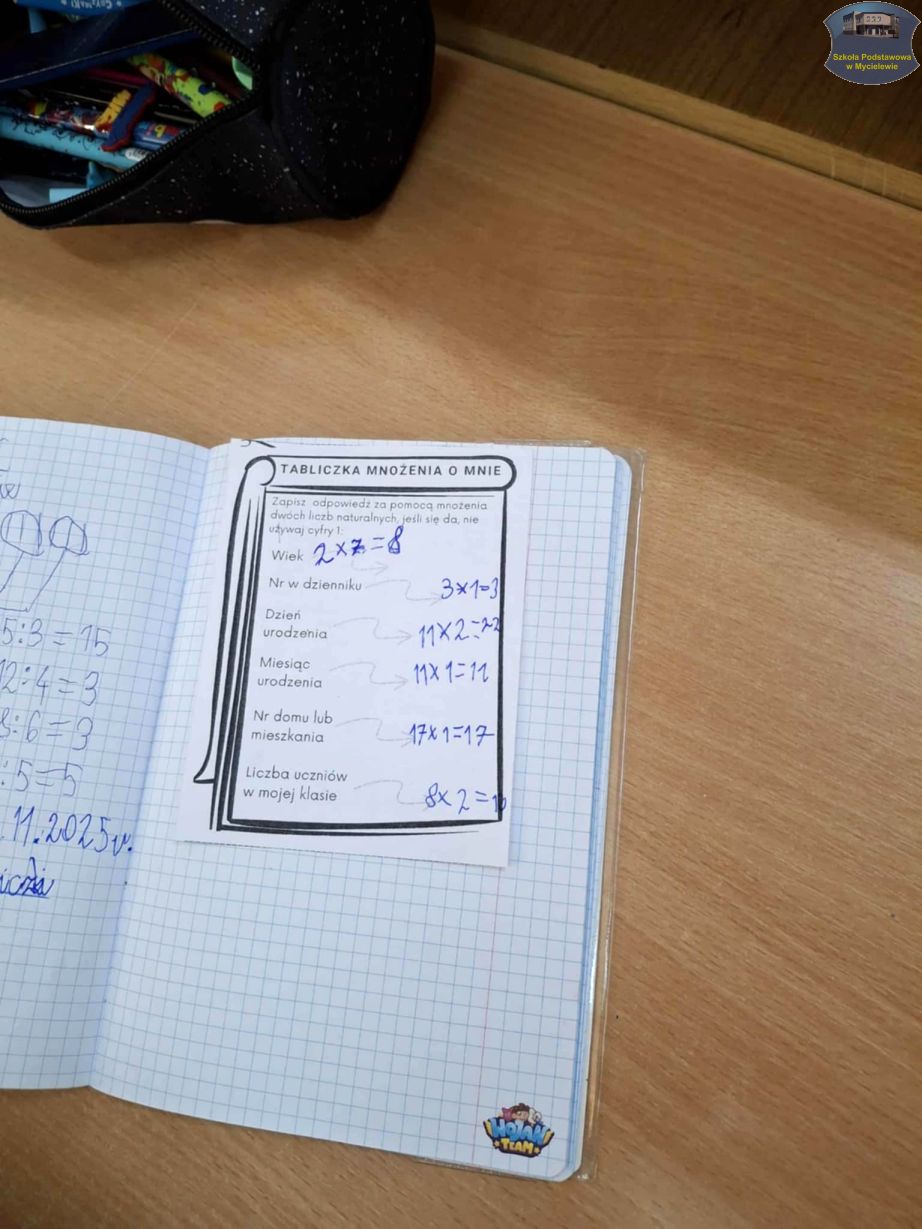 Szkoła Podstawowa
w Mycielewie
5:3=15
12:4=3
8:6=3
:5=5
.11.2025r.
TABLICZKA MNOŻENIA O MNIE
Zapisz odpowiedź za pomocą mnożenia
dwóch liczb naturalnych, jeśli się da, nie
używaj cyfry 1:
Wiek 2x =8
Nr w dzienniku 3x1=3
Dzień
urodzenia 11x2=22
Miesiąc
urodzenia 11x1=11
Nr domu lub
mieszkania 17x1=17
Liczba uczniów
w mojej klasie 8x2=16
WOJAN
TEAM